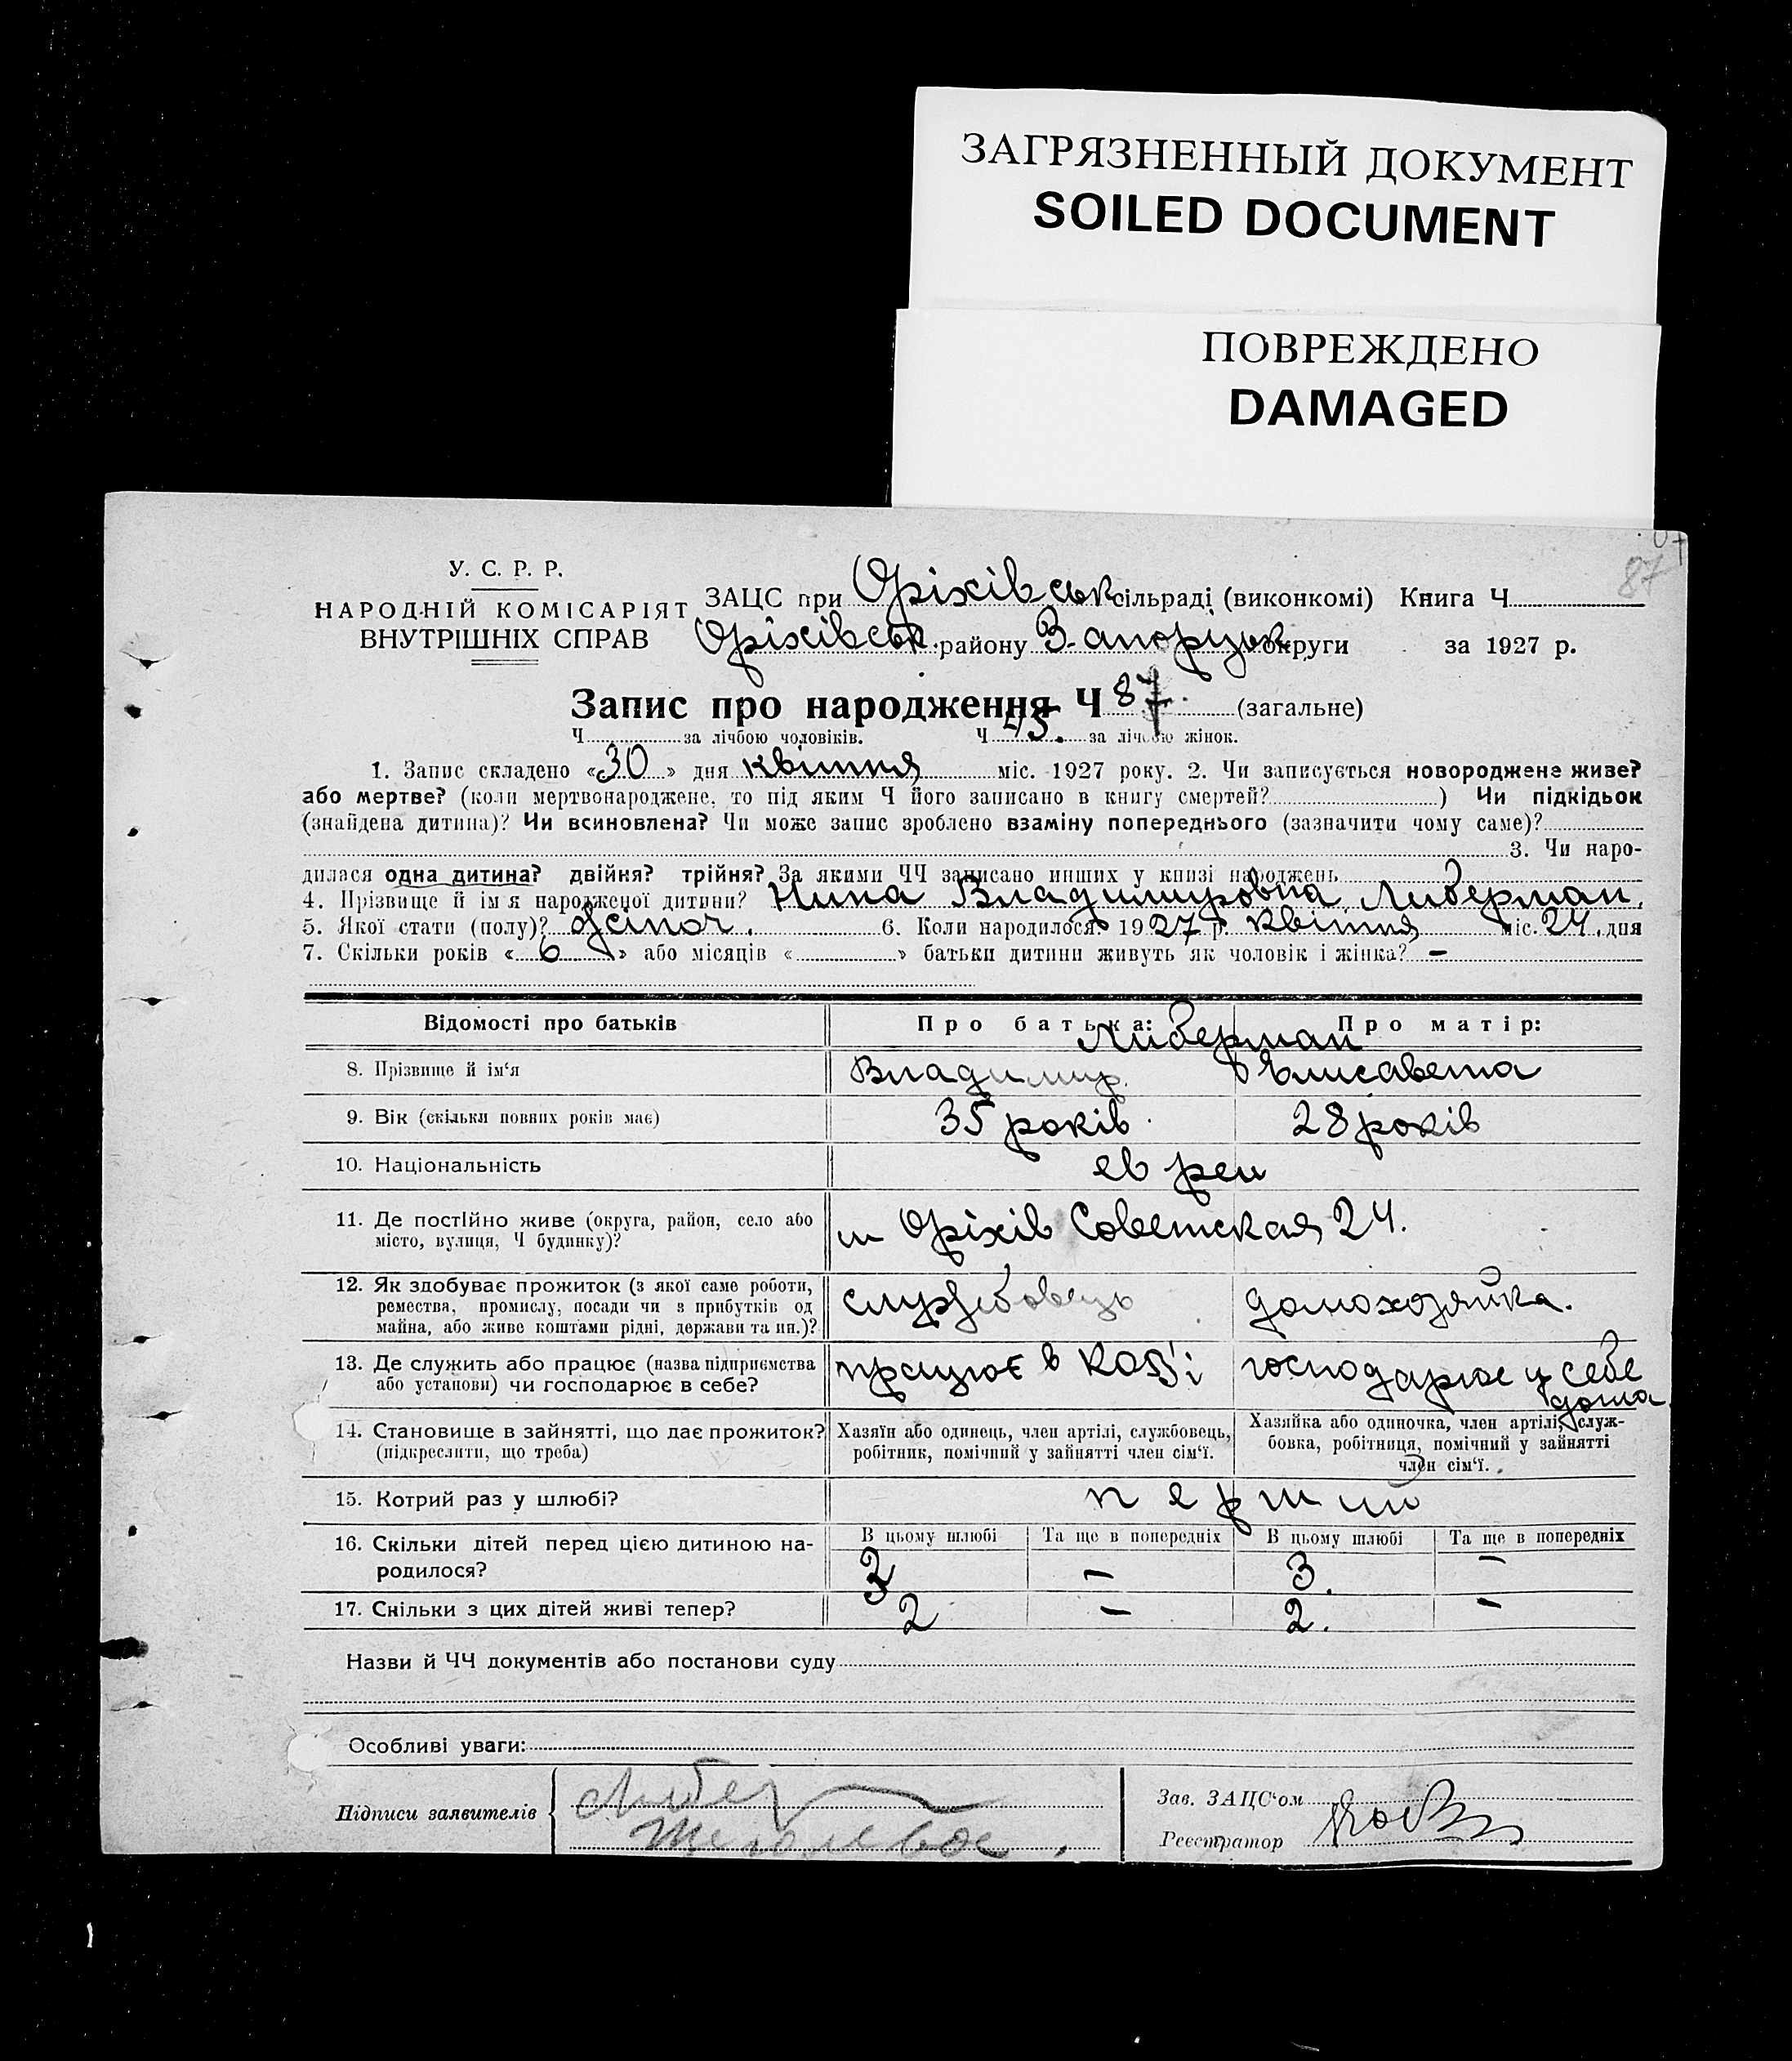 ЗАГРЯЗНЕННЫЙ ДОКУМЕНТ
SOILED DOCUMENT
ПОВРЕЖДЕНО
DAMAGED
87
У. С. Р. Р.
НАРОДНІЙ КОМІСАРІЯТ
ВНУТРІШНІХ СПРАВ
ЗАЦС при Оріхівськ сільраді (виконкомі) Книга Ч
Оріхівськ. району Запорізьк округи за 1927 р.
Запис про народження Ч 87. (загальне)
Ч за лічбою чоловіків. Ч 45. за лічбою жінок.
1. Запис складено «30» дня квітня міс. 1927 року. 2. Чи записується новороджене живе?
або мертве? (коли мертвонароджене, то під яким Ч його записано в книгу смертей? ) Чи підкідьок
(знайдена дитина)? Чи всиновлена? Чи може запис зроблено взаміну попереднього (зазначити чому саме)?
3. Чи наро-
дилася одна дитина? двійня? трійня? За якими ЧЧ записано инших у книзі народжень
4. Прізвище й ім'я народженої дитини? Нина Владимировна Либерман.
5. Якої стати (полу)? жіноч. 6. Коли народилося 1927 р. квітня міс. 24. дня
7. Скільки років «6» або місяців « » батьки дитини живуть як чоловік і жінка? –
Відомості про батьків Про батька: Про матір:
Либерман
8. Прізвище й ім'я Владимир Елисавета
9. Вік (скільки повних років має) 35 років 28 років
10. Національність евреи
11. Де постійно живе (округа, район, село або
місто, вулиця, Ч будинку)?
м Оріхів Советская 24.
12. Як здобуває прожиток (з якої саме роботи,
ремества, промислу, посади чи з прибутків од
майна, або живе коштами рідні, держави та ин.)?
службовець домохозяйка.
13. Де служить або працює (назва підприємства
або установи) чи господарює в себе?
працює в господарює у себе
дома
14. Становище в зайнятті, що дає прожиток?
(підкреслити, що треба)
Хазяїн або одинець, член артілі, службовець,
робітник, помічний у зайнятті член сім'ї.
Хазяйка або одиночка, член артілі, служ-
бовка, робітниця, помічний у зайнятті
член сім'ї.
15. Котрий раз у шлюбі? перший
16. Скільки дітей перед цією дитиною на-
родилося?
В цьому шлюбі Та ще в попередніх В цьому шлюбі Та ще в попередніх
3 – 3. –
17. Скільки з цих дітей живі тепер? 2 – 2. –
Назви й ЧЧ документів або постанови суду
Особливі уваги:
Підписи заявителів
Зав. ЗАЦС'ом
Реєстратор